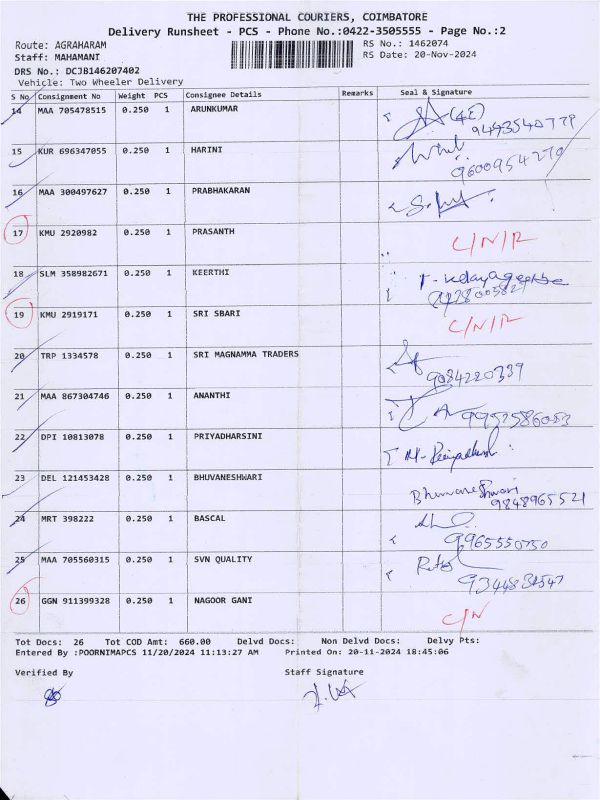 THE PROFESSIONAL COURIERS, COIMBATORE
Delivery Runsheet - PCS - Phone No.:0422-3505555 - Page No.:2
Route: AGRAHARAM RS No.: 1462074
Staff: MAHAMANI RS Date: 20-Nov-2024
DRS No.: DCJB146207402
Vehicle: Two Wheeler Delivery
S No Consignment No Weight PCS Consignee Details Remarks Seal & Signature
14 MAA 705478515 0.250 1 ARUNKUMAR
15 KUR 696347055 0.250 1 HARINI
9600954270
16 MAA 300497627 0.250 1 PRABHAKARAN
17 KMU 2920982 0.250 1 PRASANTH C/N/R
18 SLM 358982671 0.250 1 KEERTHI
19 KMU 2919171 0.250 1 SRI SBARI C/N/R
20 TRP 1334578 0.250 1 SRI MAGNAMMA TRADERS
9084220339
21 MAA 867304746 0.250 1 ANANTHI
22 DPI 10813078 0.250 1 PRIYADHARSINI
23 DEL 121453428 0.250 1 BHUVANESHWARI
Bhuvaneshwari
9848965521
24 MRT 398222 0.250 1 BASCAL
9965550750
25 MAA 705560315 0.250 1 SVN QUALITY
26 GGN 911399328 0.250 1 NAGOOR GANI C/N
Tot Docs: 26 Tot COD Amt: 660.00 Delvd Docs: Non Delvd Docs: Delvy Pts:
Entered By :POORNIMAPCS 11/20/2024 11:13:27 AM Printed On: 20-11-2024 18:45:06
Verified By Staff Signature